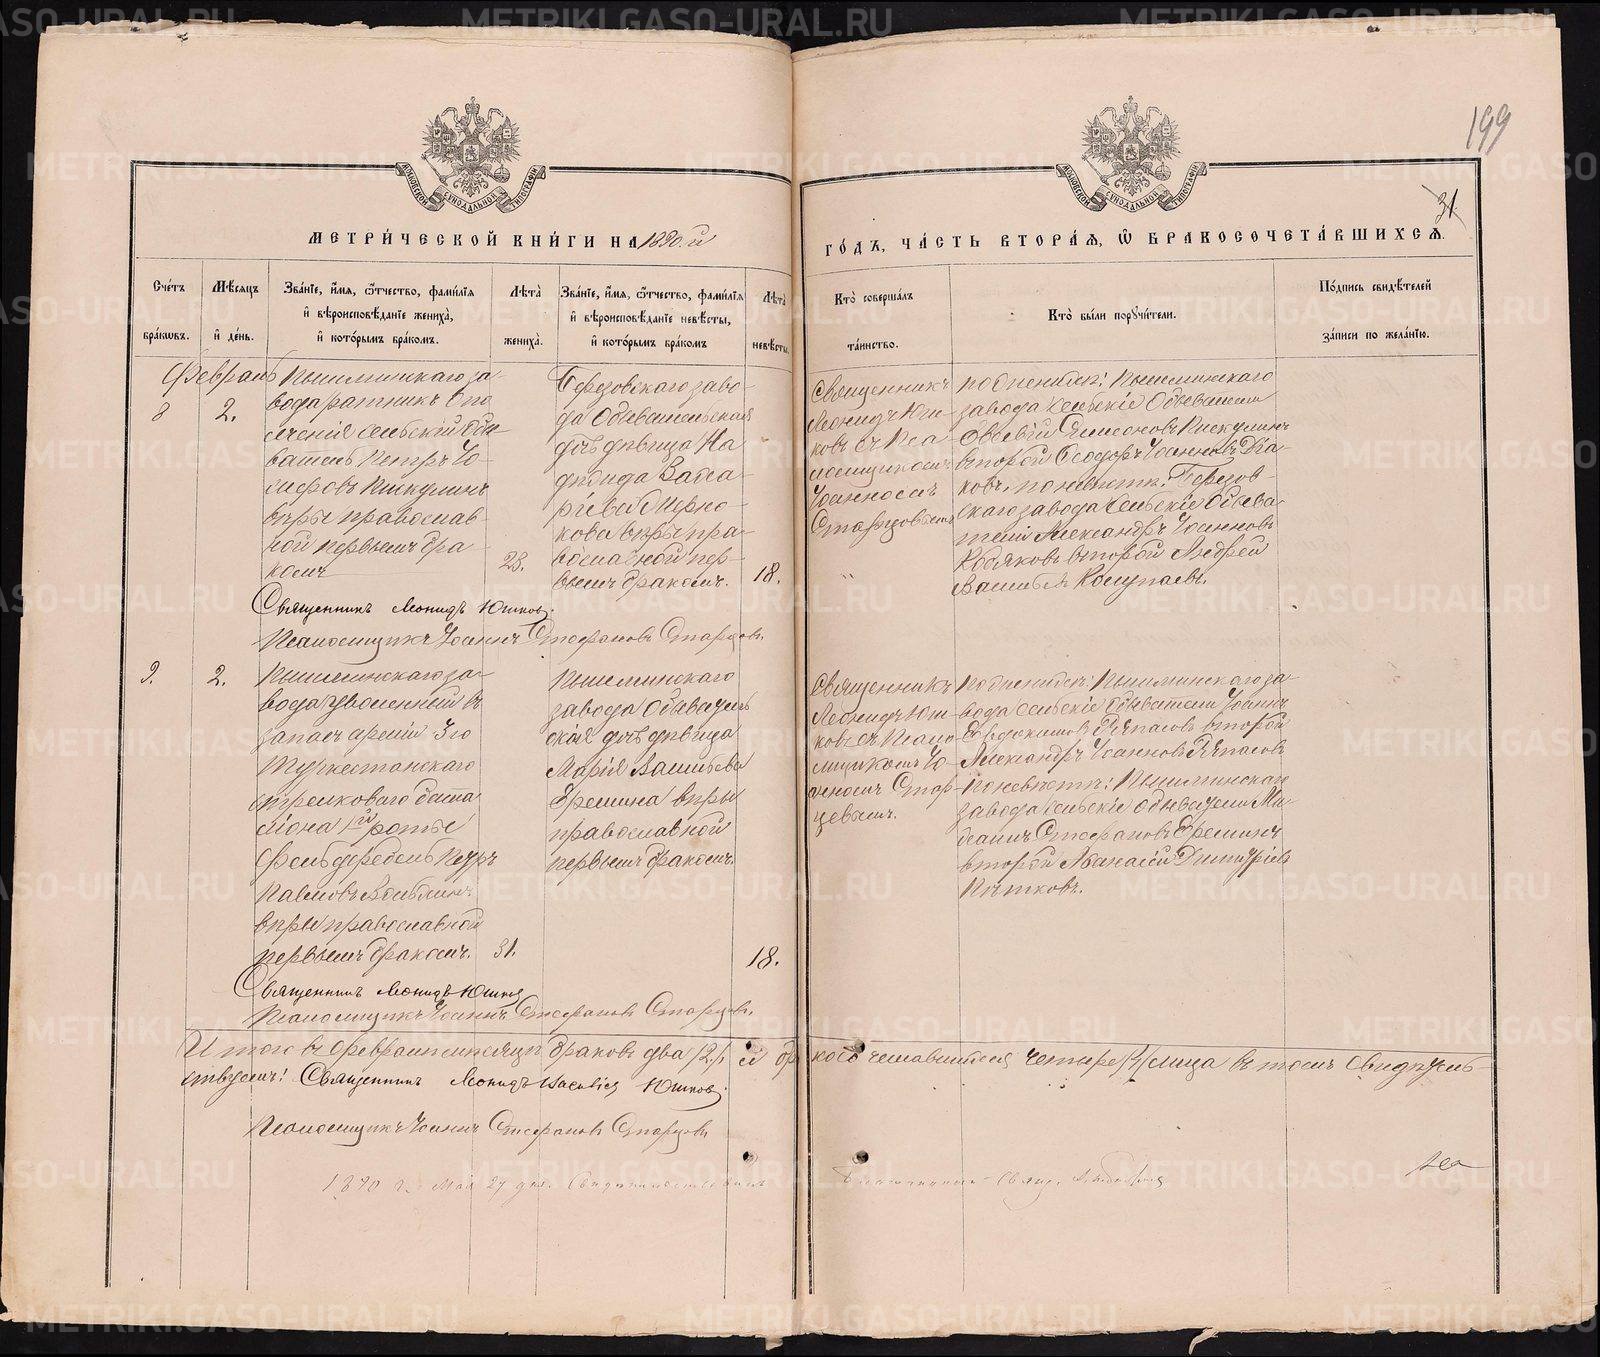 199
31
МЕТРИЧЕСКОЙ КНИГИ НА 1890.й
ГОДЪ, ЧАСТЬ ВТОРАЯ, Ѡ БРАКОСОЧЕТАВШИХСЯ.
Счетъ браковъ.
Мѣсяцъ и день.
Званіе, имя, ѿчество, фамилія
и вѣроисповѣданіе жениха,
и которымъ бракомъ.
Лѣта жениха.
Званіе, имя, ѿчество, фамилія
и вѣроисповѣданіе невѣсты,
и которымъ бракомъ
Лѣта невѣсты.
Кто совершалъ
таинство.
Кто были поручители.
Подпись свидѣтелей
записи по желанію.
Февраль
8
2.
Пышминскаго за-
вода ратникъ опо
лченія сельскій обы
ватель Петръ Іо-
сифовъ Пискулинъ
вѣры православ
ной первымъ бра
комъ
28.
Березовскаго заво-
да Обывательская
дочь дѣвица На
дѣжда
вѣры пра-
вославной пер-
вымъ бракомъ.
18.
Священникъ
Леонидъ Юш-
ковъ съ Пса
ломщикомъ
Іоанномъ
Старцовымъ
по женихѣ: Пышминскаго
завода сельскіе Обыватели
Евсевій Симеоновъ Пискулинъ
второй Ѳеодоръ Іоанновъ Дья-
ковъ, по невѣстѣ: Березов-
скаго завода Сельскіе Обыва-
тели Александръ Іоанновъ
Кобяковъ второй Андрей
Васильевъ Колупаевъ.
Священникъ Леонидъ Юшковъ.
Псаломщикъ Іоаннъ Стефановъ Старцовъ.
9.
2.
Пышминскаго за-
вода уволенный въ
запасъ арміи 3го
Туркестанскаго
стрѣлковаго бата
ліона 1й роты
Фельдфебель Петръ
Павловъ
вѣры православной
первымъ бракомъ.
31.
Пышминскаго
завода Обыватель
ская дочь дѣвица
Марія Васильева
Еремина вѣры
православной
первымъ бракомъ.
18.
Священникъ
Леонидъ Юш-
ковъ съ Псало
мщикомъ Іо-
анномъ Стар-
цевымъ.
По женихѣ: Пышминскаго за-
вода сельскіе обыватели Іоаннъ
Евдокимовъ второй
Александръ Іоанновъ
По невѣстѣ: Пышминскаго
завода сельскіе обыватели Ми-
хаилъ Стефановъ Ереминъ
второй Аѳанасій Димитріевъ
Пятковъ.
Священникъ Леонидъ Юшковъ
Псаломщикъ Іоаннъ Стефановъ Старцовъ.
Итого въ Февралѣ мѣсяцѣ браковъ два /2/. и бракосочетавшихся четыре /4/ лица въ томъ свидѣтель-
ствуемъ: Священникъ Леонидъ Юшковъ.
Псаломщикъ Іоаннъ Стефановъ Старцовъ
1890 г. Мая 27 дня. Свидѣтельствовалъ Благочинный Свящ.
METRIKI.GASO-URAL.RU